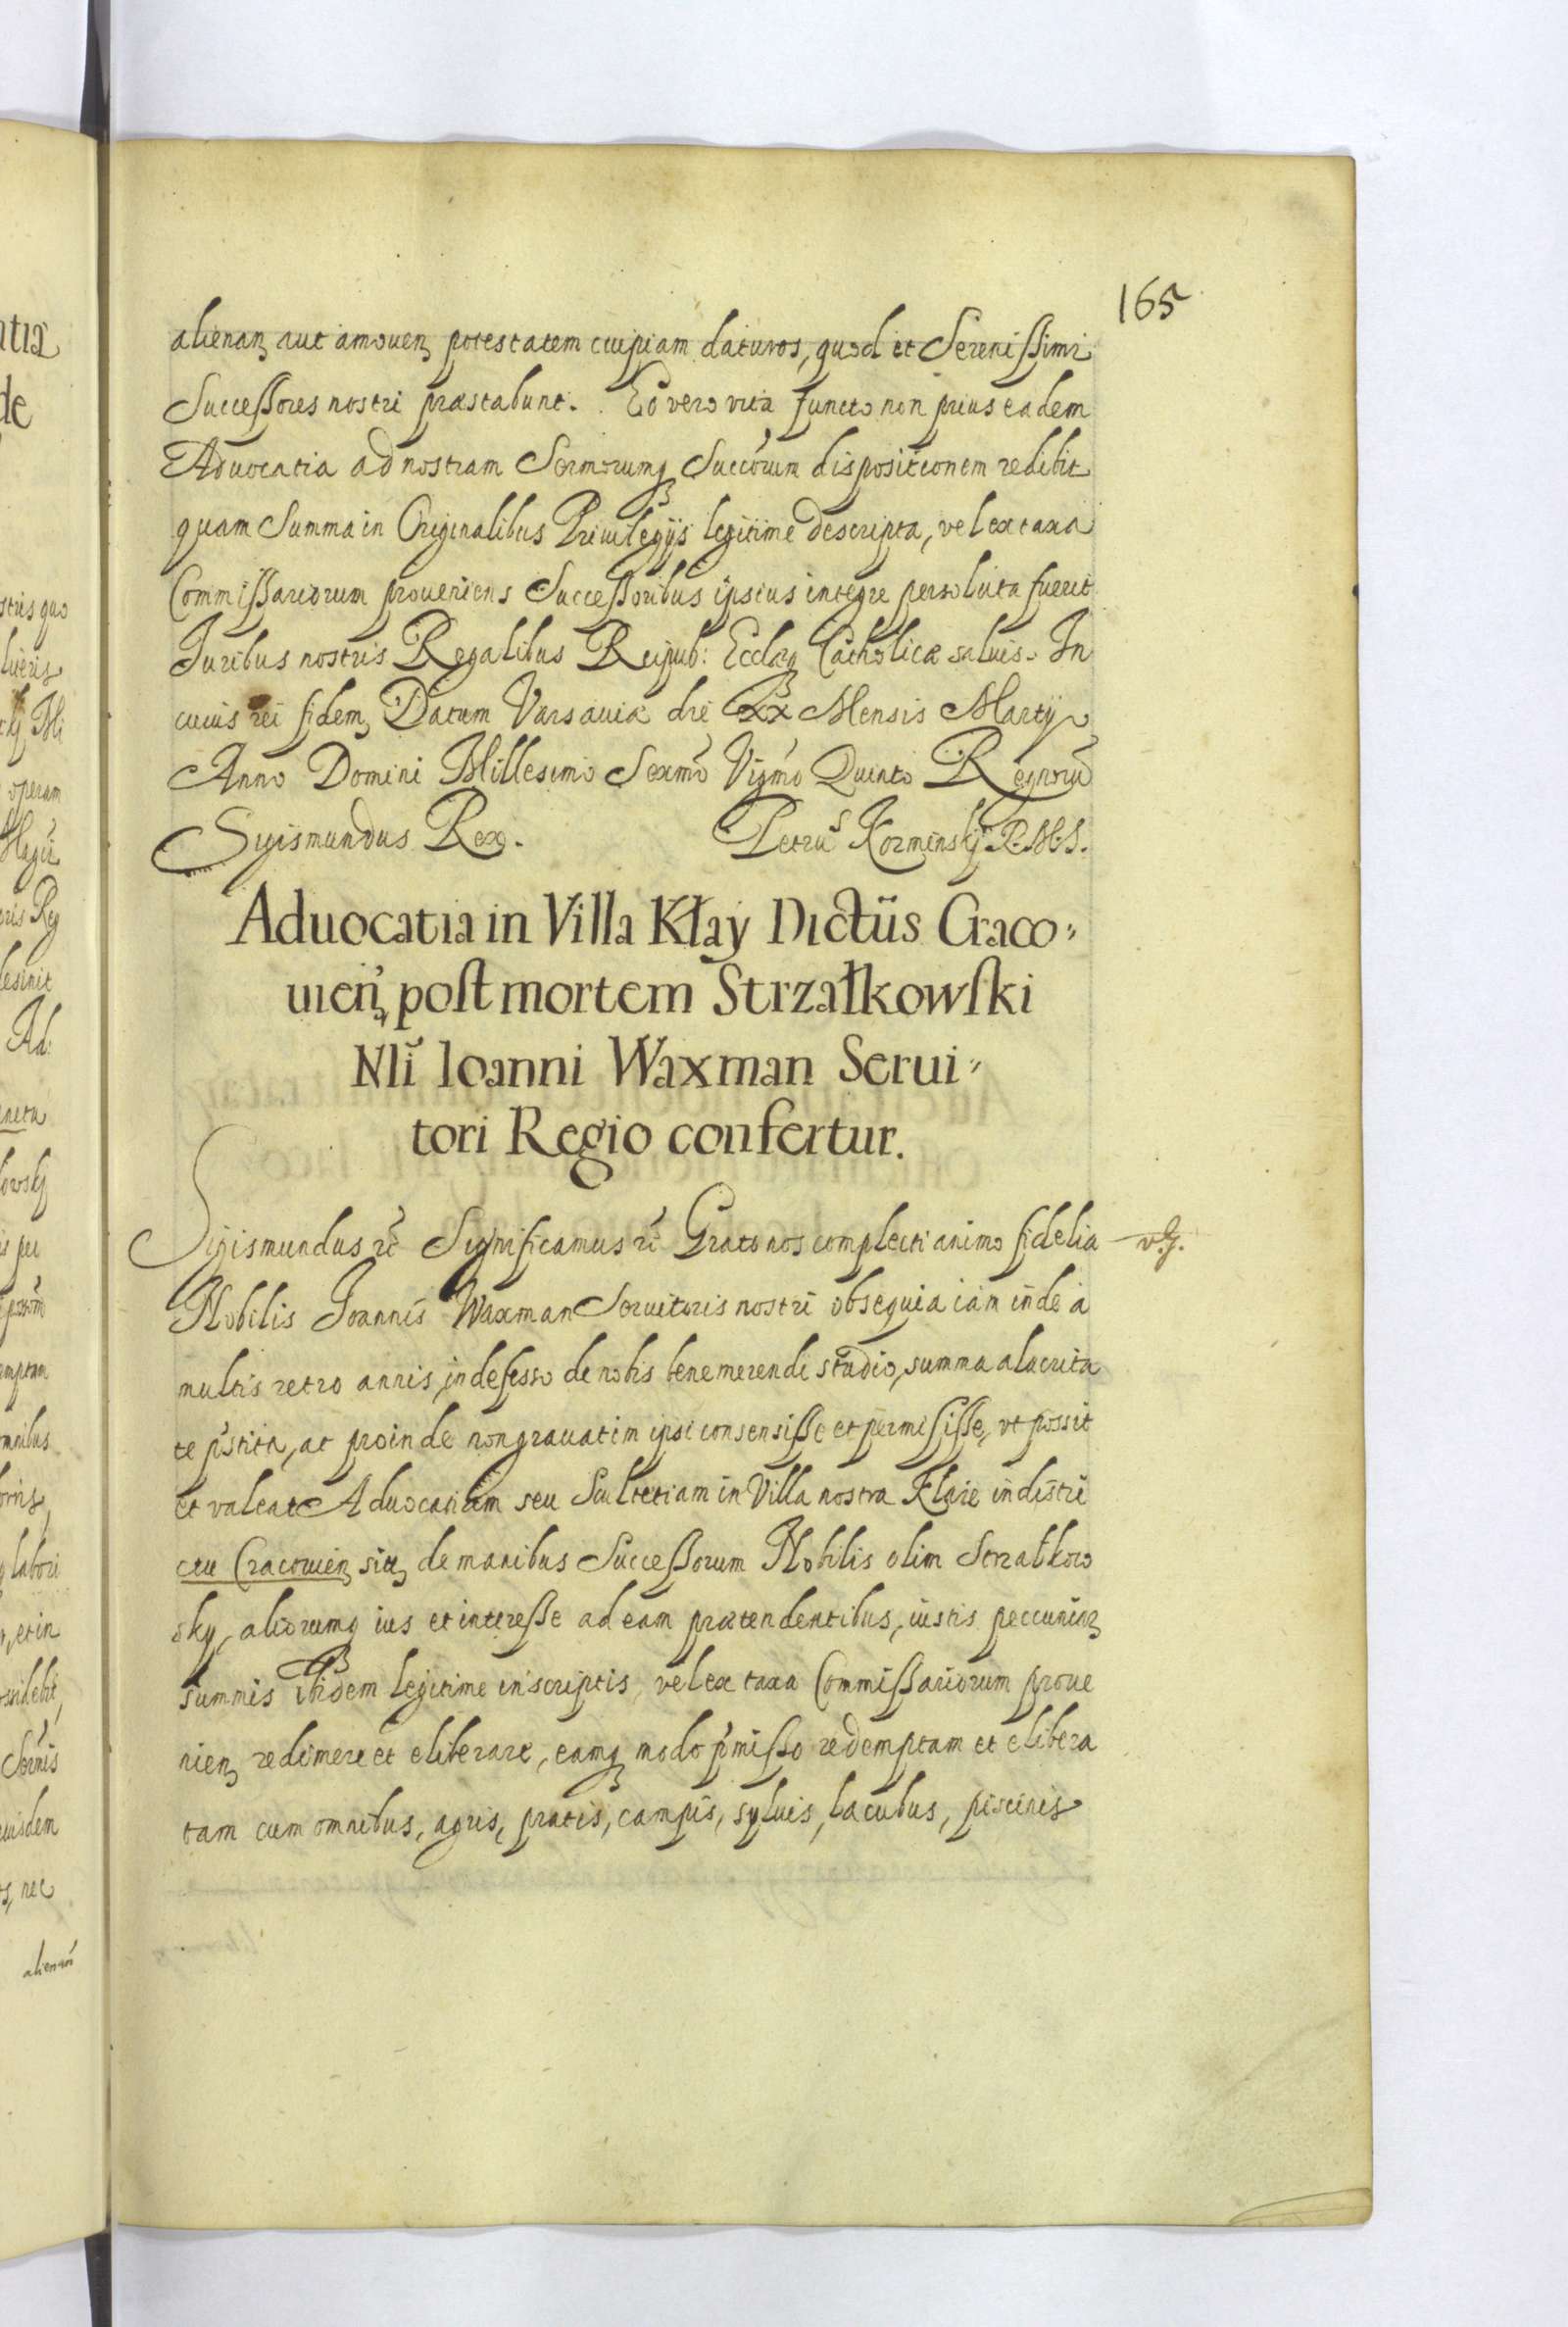 165
alienan aut amouen potestatem cuipiam daturos, quod et Serenissimi
Successores nostri præstabunt. Eo vero vita functo non prius eadem
Aduocatia ad nostram Sermorumq Succorum dispositionem redibit
quam Summa in Originalibus Priuilegijs legitime descripta, vel ex taxa
Commissariorum proueniens Successoribus ipsius integre persoluta fuerit
Juribus nostris Regalibus Reipub: Ecclæq Catholicæ saluis. In
cuius rei fidem Datum Varsauiæ die XX Mensis Martij
Anno Domini Millesimo Sexmo Vigmo Quinto Regnorū
Sigismundus Rex. Petrus R. M. S.
Aduocatia in Villa Kłay Dictüs Craco-
uien post mortem Strzałkowski
Nli Ioanni Waxman Serui-
tori Regio confertur.
Sigismundus rc Significamus rc Grato nos complecti animo fidelia
Nobilis Joannis Waxman Seruitoris nostri obsequia iam inde a
multis retro annis, indefesso de nobis bene merendi studio, summa alacrita
te pstita, ac proinde non grauatim ipsi consensisse et permisisse, vt possit
et valeat Aduocatiam seu Scultetiam in Villa nostra Klaie in distri
ctu Cracouien sitā de manibus Successorum Nobilis olim Strzałkow
sky, aliorumq ius et interesse ad eam prætendentibus, iustis peccuniar
summis ibidem legitime inscriptis, vel ex taxa Commissariorum proue
nien redimere et eliberare, eamq modo pmisso redemptam et elibera
tam cum omnibus, agris, pratis, campis, syluis, lacubus, piscinis